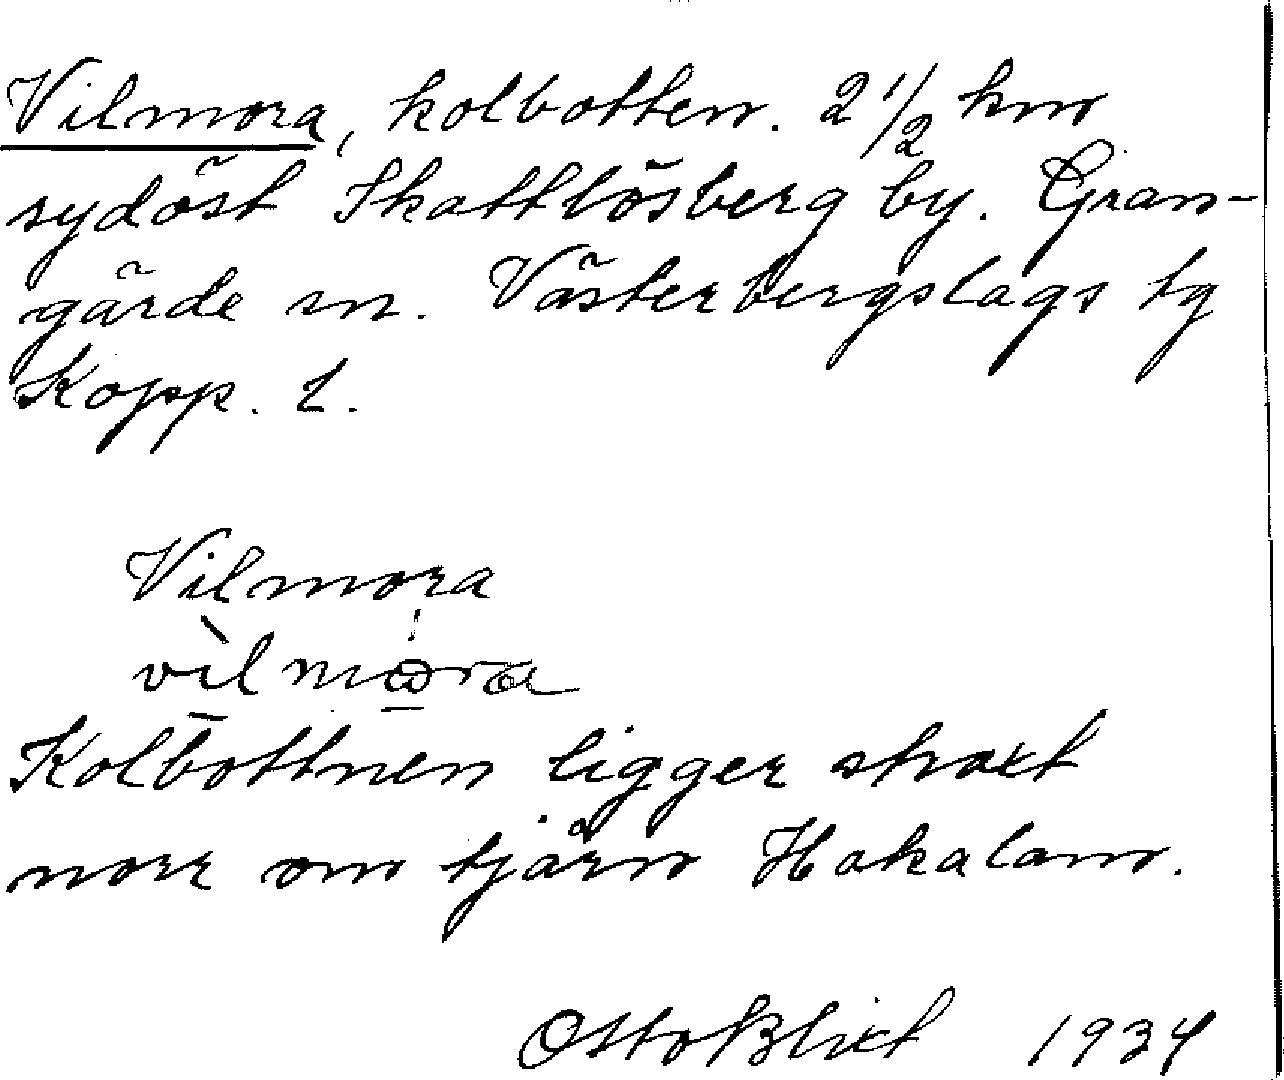 Vilmora, kolbotten. 2 1/2 km
sydöst Skattlösberg by. Gran-
gärde sn. Västerbergslags tg
Kopp. l.
Vilmora
vìlmꞷra
Kolbottnen ligger straxt
norr om tjärn Hakalam.
Otto Blixt 1934